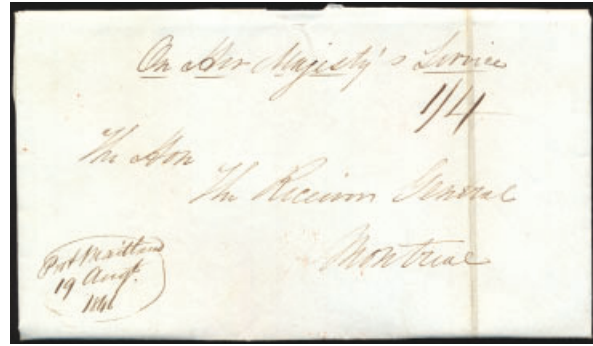 On Her Majesty's Service
1/4
The Hon
The Receiver General
Montreal
Port Maitland
19 Augt.